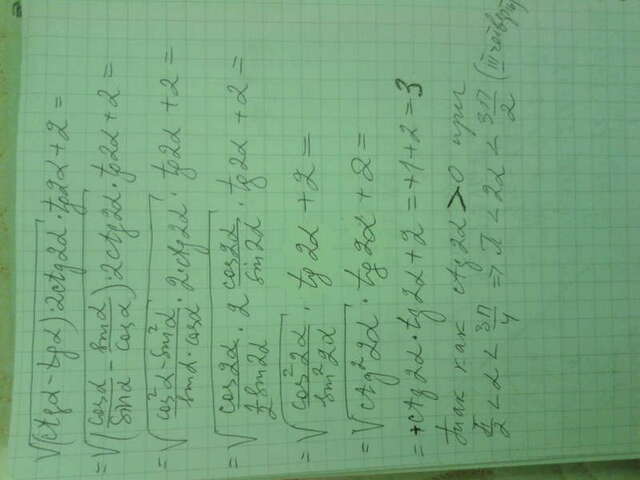 √(ctgα - tgα)·2ctg2α · tg2α + 2 =
= √(cosα/sinα - sinα/cosα)·2ctg2α · tg2α + 2 =
= √(cos²α - sin²α)/(sinα · cosα) · 2ctg2α · tg2α + 2 =
= √cos2α/(½ sin2α) · 2 cos2α/sin2α · tg2α + 2 =
= √cos²2α/sin²2α · tg2α + 2 =
= √ctg²2α · tg2α + 2 =
= +ctg2α · tg2α + 2 = +1 + 2 = 3
так как ctg2α > 0 при
π/2 < α < 3π/4 ⇒ π < 2α < 3π/2 (III четверть)